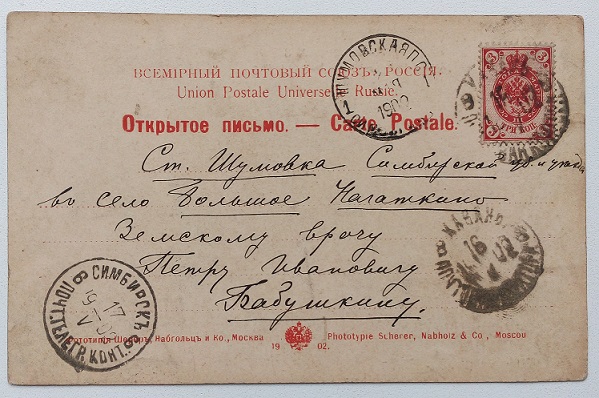 ВСЕМІРНЫЙ ПОЧТОВЫЙ СОЮЗЪ, РОССІЯ.
Union Postale Universelle. Russie.
Открытое письмо. — Carte Postale.
Ст. Шумовка Симбирской губ. и уѣзда
въ село Большое Нагаткино
Земскому врачу
Петру Ивановичу
Бабушкину.
Фототипія Шереръ, Набгольцъ и Ко., Москва
19 02.
Phototypie Scherer, Nabholz & Co., Moscou
3 3
ШУМОВСКАЯ
1902
СИМБИРСКЪ
17
V
ПОЧТ. ТЕЛЕГР. КОНТ.
16
02